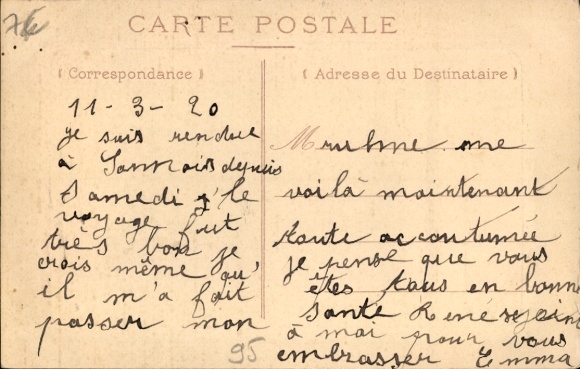 76
CARTE POSTALE
( Correspondance )
( Adresse du Destinataire )
11-3-20
je suis rendue
à Sannois depuis
Samedi le
voyage fut
très bon je
crois même qu'
il m'a fait
passer mon
95
rhume me
voilà maintenant
toute accoutumée
je pense que vous
êtes tous en bonne
santé René se joint
à moi pour vous
embrasser Emma